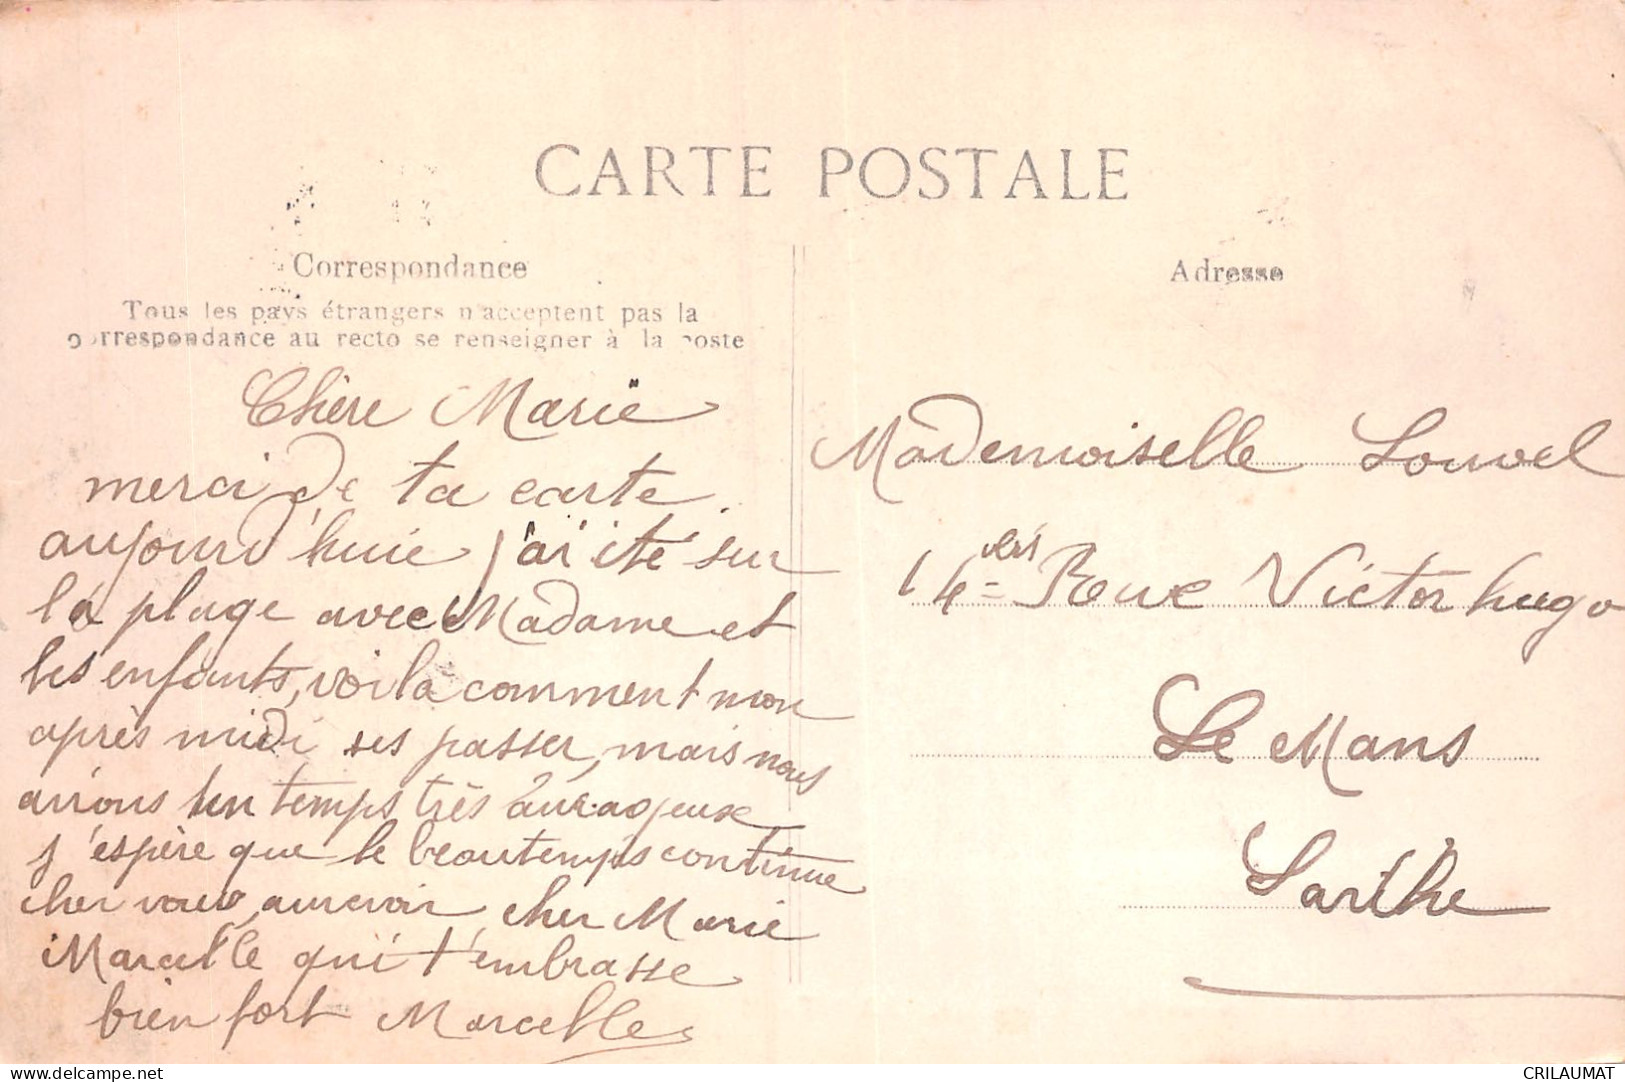 CARTE POSTALE
Correspondance
Tous les pays étrangers n'acceptent pas la
correspondance au recto se renseigner à la poste
Chère Marie
merci de ta carte
aujourd'huie j'ai été sur
la plage avec Madame et
les enfants, voila comment mon
après midi ses passer, mais nous
avions un temps très
j'espère que le beautemps continue
cher vous, aurevoir, cher Marie
Marcelle qui t'embrasse
bien fort Marcelle
Adresse
Mademoiselle Louvel
14 bis Rue Victor hugo
Le Mans
Sarthe
CRILAUMAT